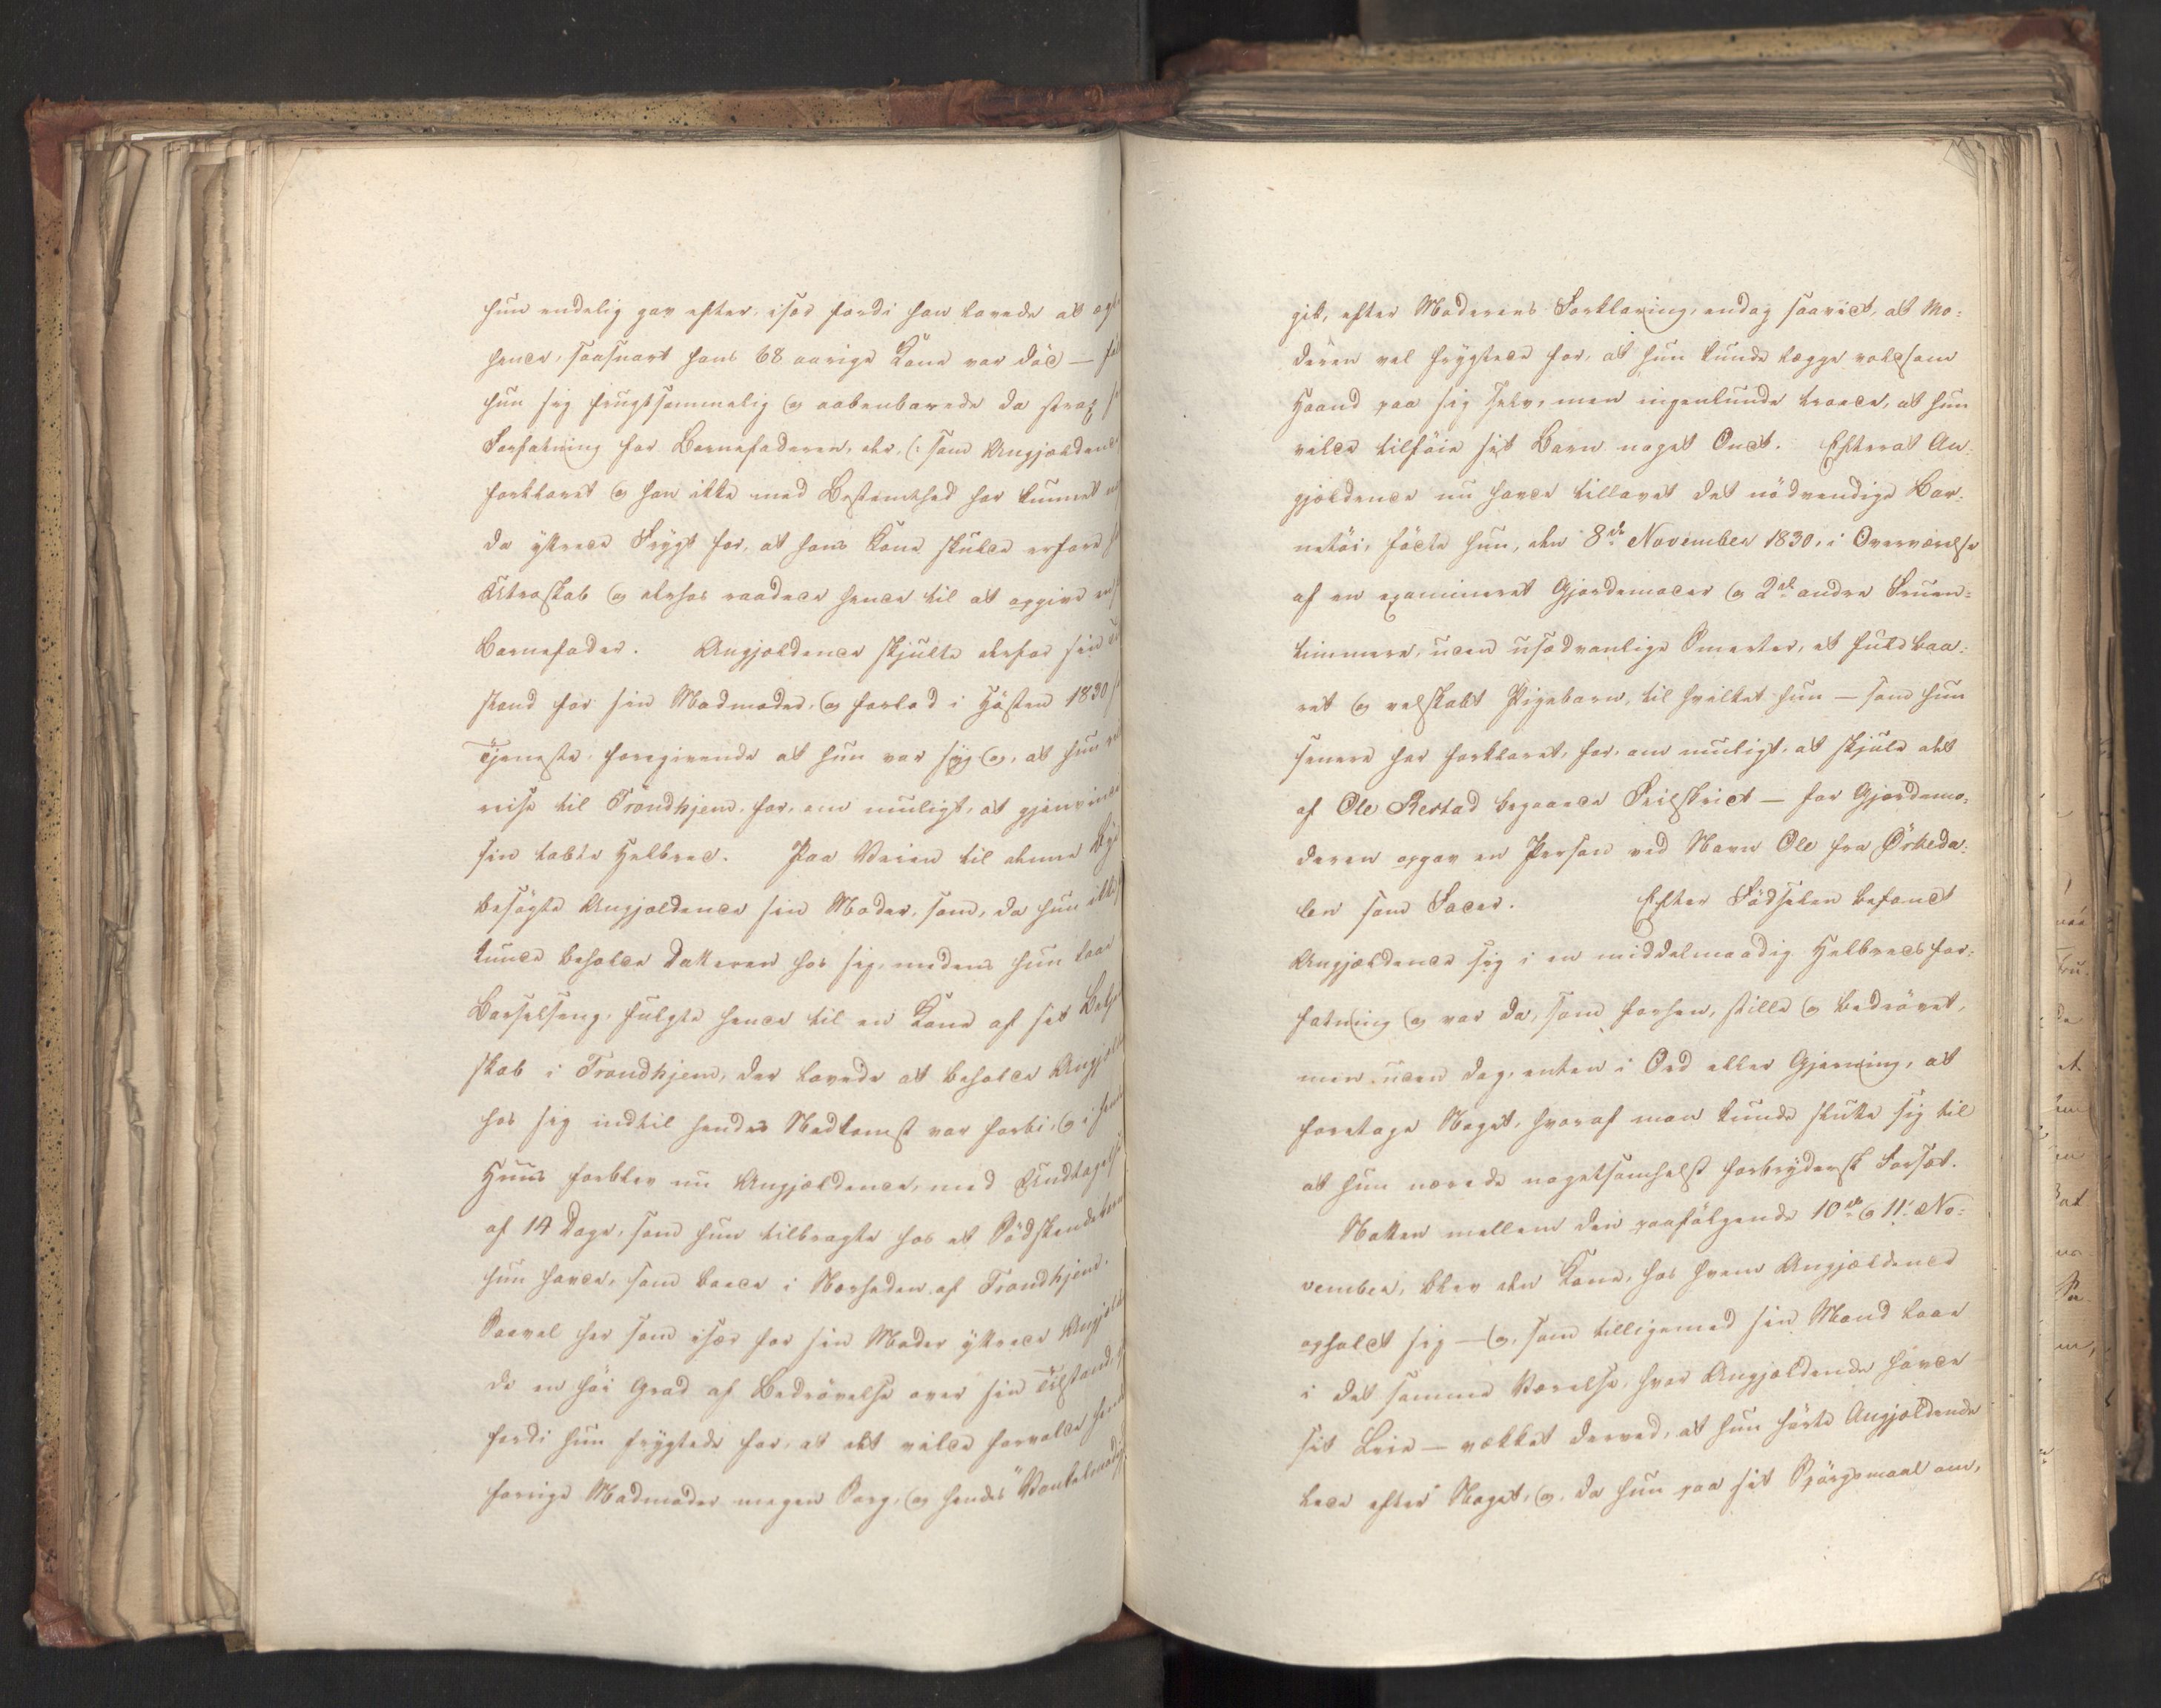 hun endelig gav efter, især fordi han lovede at ægte
hende, saasnart hans 68 aarige Kone var död —
hun sig frugtsommelig og aabenbarede da strax
Forfatning for Barnefaderen, der, (: som Angjældende
forklaret og han ikke med Bestemthed har kunnet
da yttrede Frygt for, at hans Kone skulde erfare
Utroskab og derfor raadede hende til at opgive en
Barnefader. Angjældende skjulte derfor sin
stand for sin Madmoder, og forlod i Hösten 1830
Tjeneste, foregivende at hun var syg og, at hun
reise til Trondhjem, for, om muligt, at gjenvinde
sin tabte Helbred. Paa Veien til denne Bye
besögte Angjældende sin Moder, som, da hun ikke
kunde beholde Datteren hos sig, medens hun laae
Barselseng, fulgte hende til en Kone af sit Bekjendt
skab i Trondhjem, der lovede at beholde Angjæld
hos sig indtil hendes Nedkomst var forbi, og i hendes
Huus forblev nu Angjældende, med Undtagelse
af 14 Dage, som hun tilbragte hos et Södskendebarn
hun havde, som boede i Nærheden af Trondhjem.
Saavel her som især for sin Moder yttrede Angjæld
de en höi Grad af Bedrövelse over sin Tilstand,
fordi hun frygtede for, at det vilde forvolde hendes
forrige Madmoder megen Sorg, og hendes Vankelmodig
gik, efter Moderens Forklaring, endog saavidt, at Mo=
deren vel frygtede for, at hun kunde lægge voldsom
Haand paa sig selv, men ingenlunde troede, at hun
vilde tilföie sit Barn noget Ondt. Efterat An=
gjældende nu havde tillavet det nödvendige Bar=
netöi, födte hun, den 8de November 1830, i Overværelse
af en examineret Gjordemoder og 2de andre Fruen=
timmere, uden usædvanlige Smerter, et fuldbaa=
ret og velskabt Pigebarn, til hvilket hun — som hun
senere har forklaret, for, om muligt, at skjule det
af Ole Restad begaaede Feilskridt — for Gjordemo=
deren opgav en Person ved Navn Ole fra Örkeda=
len som Fader. Efter Födselen befandt
Angjældende sig i en middelmaadig Helbredsfor=
fatning og var da, som forhen, stille og bedrövet,
men uden dog, enten i Ord eller Gjerning, at
foretage Noget, hvoraf man kunde slutte sig til
at hun nærede nogetsomhelst forbrydersk Forsæt.
Natten mellem den paafölgende 10de og 11te No=
vember, blev den Kone, hos hvem Angjældende
opholdt sig — og, som tilligemed sin Mand laae
i det samme Værelse, hvor Angjældende havde
sit Leie — vækket derved, at hun hörte Angjældende
lede efter Noget, og, da hun paa sit Spörgsmaal om,